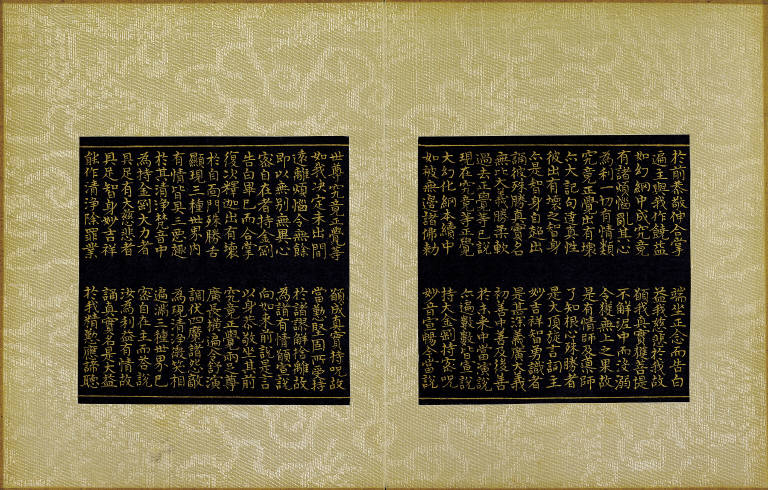 於前恭敬伸合掌　端坐正念而告白
遍主與我作饒益　益我慈悲於我故
如幻網中成究竟　願我真實獲菩提
有諸煩惱亂其心　不解泥中而沒溺
為利一切有情類　令獲無上之果故
究竟正覺出有壞　是有情師及導師
亦大記句達真性　了知根心殊勝者
彼出有壞之智身　是大頂旋言詞主
亦是智身自超出　妙吉祥智勇識者
誦彼殊勝真實名　是甚深義廣大義
無比大義勝柔軟　初善中善及後善
過去正覺等已說　於未來中當演說
現在究竟等正覺　亦遍數數皆宣說
大幻化網本續中　持大金剛持密呪
如彼無邊諸佛勅　妙音宣暢今當說
世尊究竟正覺等　願成真實持呪故
如我決定未出間　當勤堅固而受持
遠離煩惱令無餘　於諸謬解捨離故
即以無別無異心　為諸有情願宣說
密自在者持金剛　向如來前說是言
告白畢已而合掌　以身恭敬坐其前
復次釋迦出有壞　究竟正覺兩足尊
於自面門殊勝舌　廣長橫遍令舒演
顯現三種世界內　調伏四魔諸怨敵
有情皆具三惡趣　為現清淨微笑相
於其清淨梵音中　遍滿三種世界已
為持金剛大力者　密自在主而答說
具足有大慈悲者　汝為利益有情故
具足智身妙吉祥　誦真實名是大益
能作清淨除罪業　於我精勤應諦聽